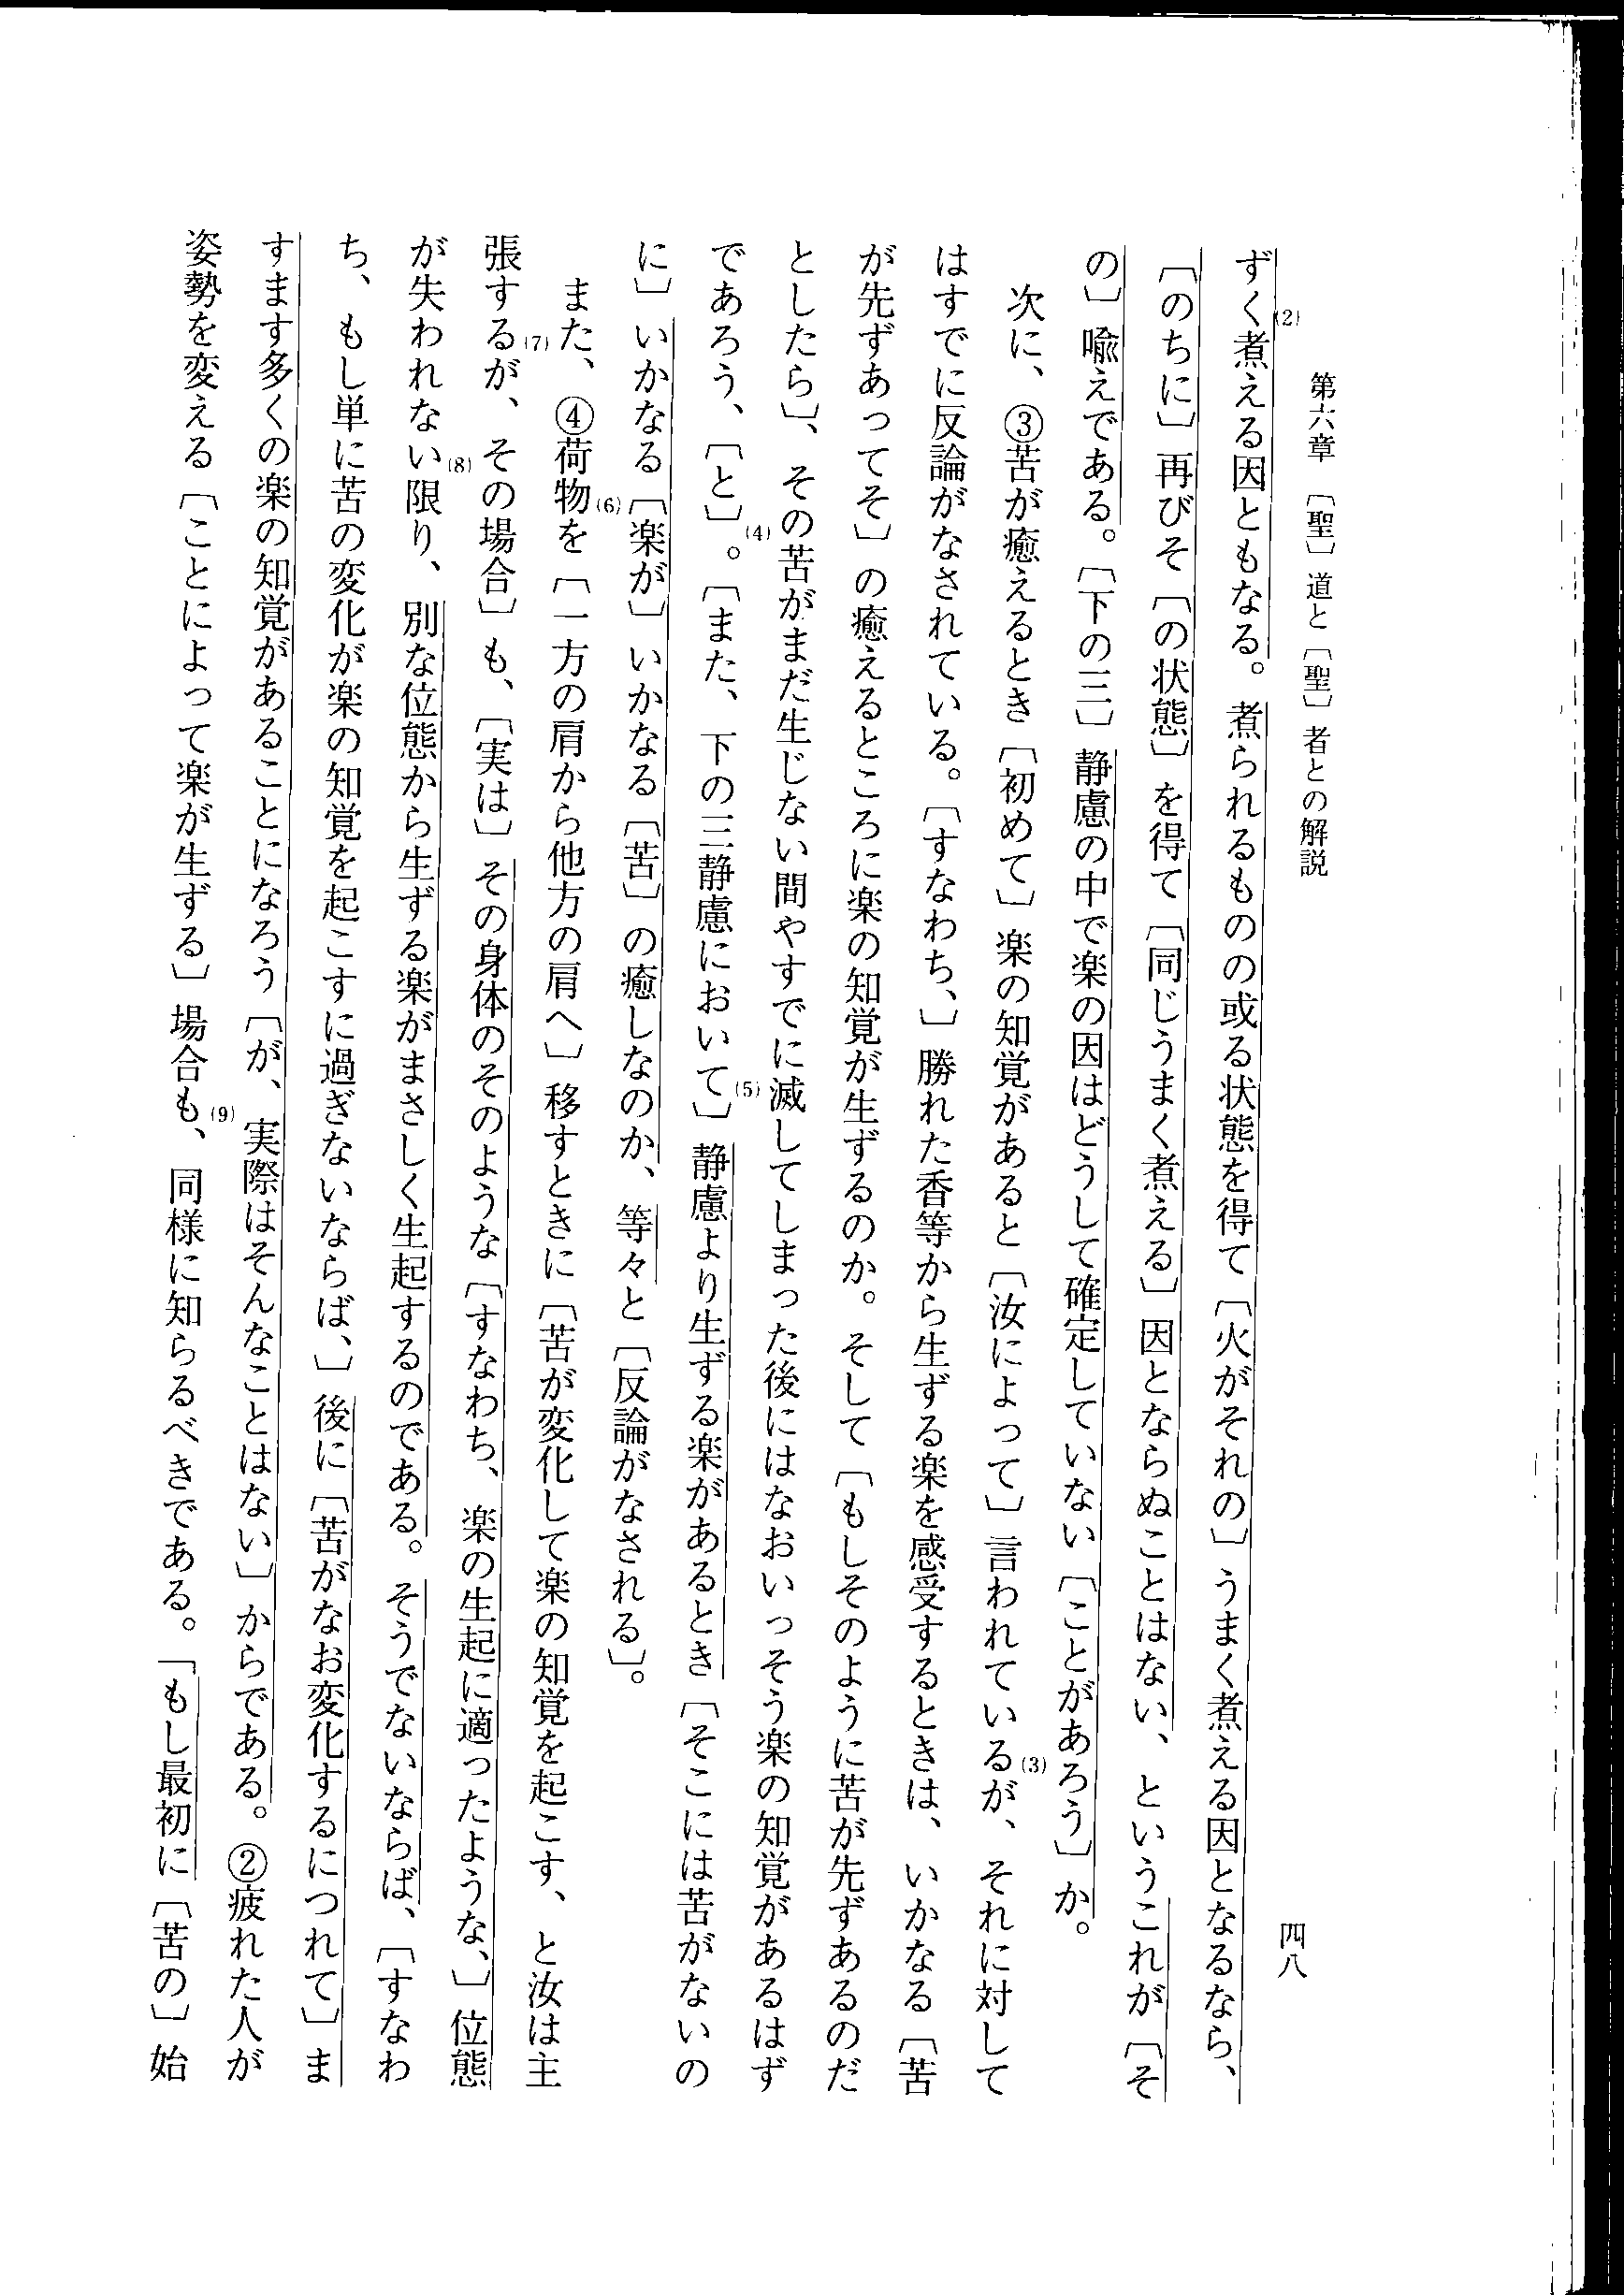 第六章　〔聖〕道と〔聖〕者との解説
四八
ずく煮える因ともなる。煮られるものの或る状態を得て〔火がそれの〕うまく煮える因となるなら、
(2)
〔のちに〕再びそ〔の状態〕を得て〔同じうまく煮える〕因とならぬことはない、というこれが〔そ
の〕喩えである。〔下の三〕静慮の中で楽の因はどうして確定していない〔ことがあろう〕か。
次に、③苦が癒えるとき〔初めて〕楽の知覚があると〔汝によって〕言われているが、それに対して
(3)
はすでに反論がなされている。〔すなわち、〕勝れた香等から生ずる楽を感受するときは、いかなる〔苦
が先ずあってそ〕の癒えるところに楽の知覚が生ずるのか。そして〔もしそのように苦が先ずあるのだ
としたら〕、その苦がまだ生じない間やすでに滅してしまった後にはなおいっそう楽の知覚があるはず
であろう、〔と〕。〔また、下の三静慮において〕静慮より生ずる楽があるとき〔そこには苦がないの
(4)
(5)
に〕いかなる〔楽が〕いかなる〔苦〕の癒しなのか、等々と〔反論がなされる〕。
また、④荷物を〔一方の肩から他方の肩へ〕移すときに〔苦が変化して楽の知覚を起こす、と汝は主
(6)
張するが、その場合〕も、〔実は〕その身体のそのような〔すなわち、楽の生起に適ったような、〕位態
(7)
が失われない限り、別な位態から生ずる楽がまさしく生起するのである。そうでないならば、〔すなわ
(8)
ち、もし単に苦の変化が楽の知覚を起こすに過ぎないならば、〕後に〔苦がなお変化するにつれて〕ま
すます多くの楽の知覚があることになろう〔が、実際はそんなことはない〕からである。②疲れた人が
姿勢を変える〔ことによって楽が生ずる〕場合も、同様に知らるべきである。「もし最初に〔苦の〕始
(9)